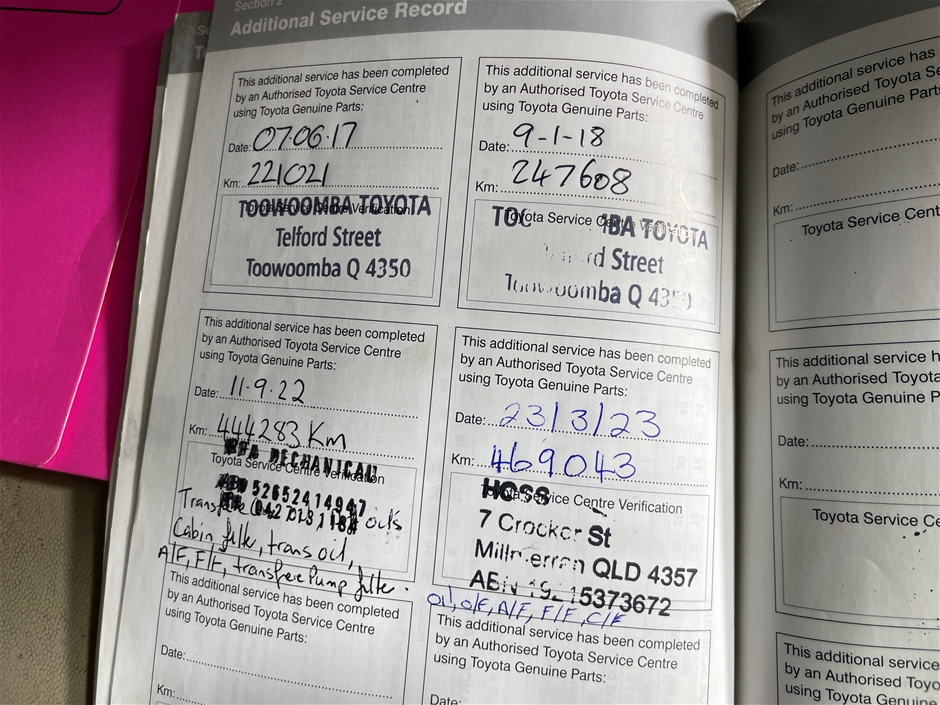 Section 2
Additional Service Record
This additional service has been completed
by an Authorised Toyota Service Centre
using Toyota Genuine Parts:
Date: 07·06·17
Km: 221021
Toyota Service Centre Verification
TOOWOOMBA TOYOTA
Telford Street
Toowoomba Q 4350
This additional service has been completed
by an Authorised Toyota Service Centre
using Toyota Genuine Parts:
Date: 9-1-18
Km: 247608
Toyota Service Centre Verification
BA TOYOTA
Street
Toowoomba Q
This additional service has been completed
by an Authorised Toyota Service Centre
using Toyota Genuine Parts:
Date: 11.9.22
Km: 444283 Km
MECHANICAL
Toyota Service Centre Verification
oils
Cabin filte, trans oil,
A/F, F/F, transfer Pump filte.
This additional service has been completed
by an Authorised Toyota Service Centre
using Toyota Genuine Parts:
Date: 23/3/23
Km: 469043
HOSS
Service Centre Verification
7 Crocker St
Millmerran QLD 4357
ABN
Oil, O/F, A/F, F/F, C/F
This additional service has been completed
by an Authorised Toyota Service Centre
using Toyota Genuine Parts:
Date:
Km:
This additional service has been completed
by an Authorised Toyota Service Centre
using Toyota Genuine Parts:
Date:
This additional service has
by an Authorised Toyota Se
using Toyota Genuine Parts
Date:
Km:
Toyota Service Cent
This additional service h
by an Authorised Toyota
using Toyota Genuine P
Date:
Km:
Toyota Service Ce
This additional service
by an Authorised Toyo
using Toyota Genuine